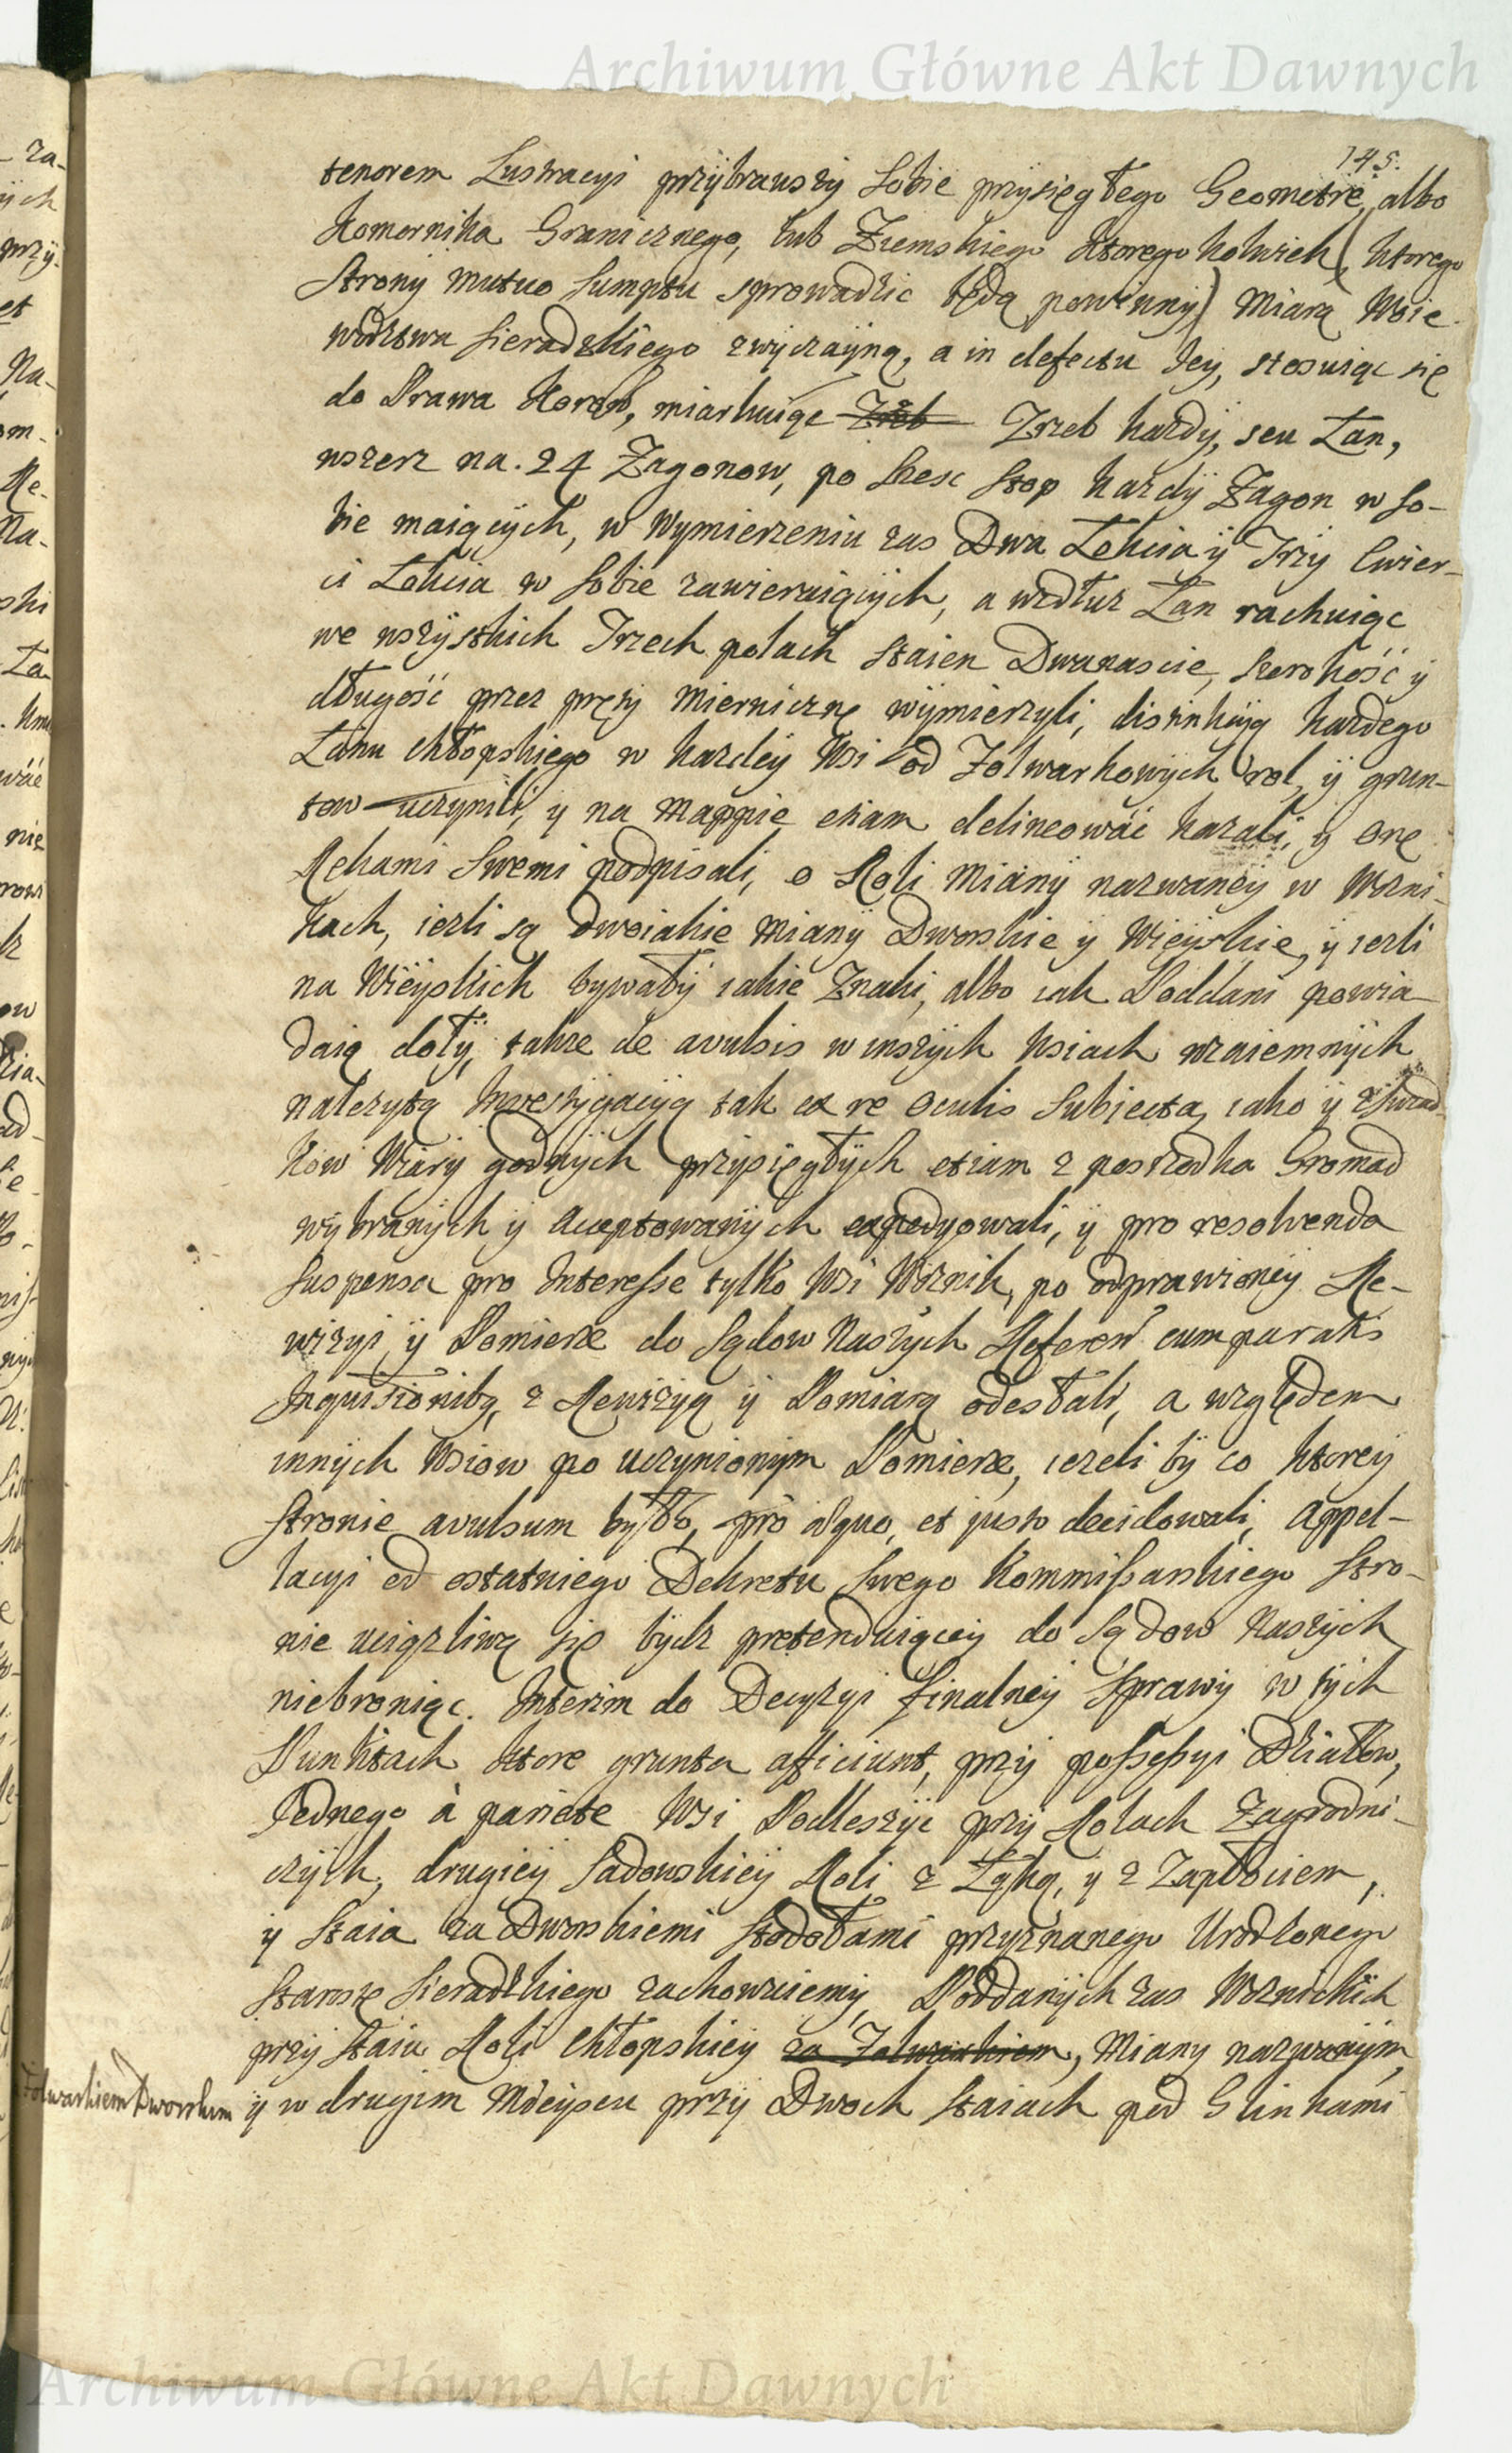 Archiwum Główne Akt Dawnych
145.
tenorem Lustracyi przybrawszy sobie przysięgłego Geometrę, albo
Komornika Granicznego, lub Ziemskiego ktoregokolwiek (ktorego
strony mutuo sumptu sprowadzic będą powinny) miarą Woie-
wodztwa Sieradzkiego zwyczayną, a in defectu Jey, stosuiąc się
do Prawa Koron, miarkuiąc Zrzeb Zrzeb kazdy, seu Łan,
wszerz na. 24 Zagonow, po szesc stop kazdy Zagon w so-
bie maiących, w wymierzeniu zas Dwa Łokcia y Trzy Cwier-
ci Łokcia w sobie zawieraiących, a wzdłuz Łan rachuiąc
we wszystkich Trzech polach staien Dwanascie, szerokość y
długość przez pręty miernicze wymierzyli, distinkcyą kazdego
Łanu chłopskiego w kazdey Wsi od Folwarkowych rol, y grun-
tow uczynili, y na Mappie etiam delineować kazali, y onę
Rękami swemi podpisali, o Roli Miany nazwaney w Wozni-
kach, iezli są dwoiakie Miany Dworskie y Wieyskie, y iezli
na Wieyskich bywały iakie Znaki, albo iak Poddani powia-
daią doły, takze de avulsis w inszych Wsiach wzaiemnych
nalezytą Inwestygacyą tak ex re oculis subiecta, iako y z swiad-
kow wiary godnych przysięgłych etiam z posrzodka Gromad
wybranych y acceptowanych expedyowali, y pro resolvenda
suspensa pro Interesse tylko Wsi Woznik, po odprawioney Re-
wizyi y Pomierze do Sądow Naszych Referen cum paratis
Inquisitionibq, z Rewizyą y Pomiarą odesłali, a względem
innych Wsiow po uczynionym Pomierze, iezeli by co ktorey
stronie avulsum było, pro æquo, et justo decidowali, appel-
lacyi od ostatniego Dekretu swego Kommissarskiego stro-
nie uciązliwą się bydz pretenduiącey do Sądow Naszych
niebroniąc. Interim do Decyzyi finalney sprawy w tych
Punktach ktore grunta aficiunt, przy possessyi Działow,
Jednego à pariete Wsi Podleszyc przy Rolach Zagrodni-
czych, drugiey Sadowskiey Roli z Łąką, y z Zapłociem,
y staia za Dworskiemi stodołami przyznanego Urodzonego
Starostę Sieradzkiego zachowuiemy, Poddanych zas Woznickich
przy staiu Roli Chłopskiey za Folwarkiem, Miany nazwanym
folwarkiem Dworskim y w drugim Mieyscu przy Dwoch staiach pod Glinkami
Archiwum Główne Akt Dawnych